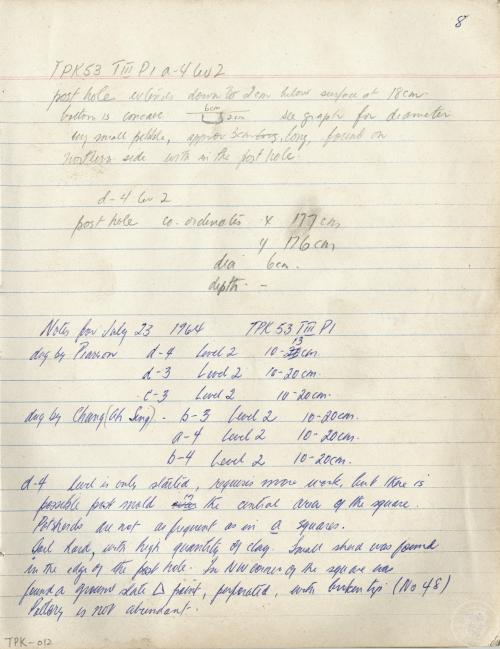 8
TPK53 TIII P1 a-4 lev 2
post hole extends down to 2cm below surface at 18cm
bottom is concave 6cm 2cm see graph for diameter
very small pebble, approx 3cm long, long, found on
northern side with in the post hole.
d-4 lev 2
post hole co-ordinates x 177 cm
y 176 cm
dia 6cm.
depth -
Notes for July 23 1964 TPK 53 TIII P1
dug by Pearson d-4 Level 2 10-13cm.
d-3 Level 2 10-20cm.
c-3 Level 2 10-20cm.
dug by Chang (Ah Sing) - b-3 Level 2 10-20cm.
a-4 Level 2 10-20cm.
b-4 Level 2 10-20cm.
d-4 Level is only started, requires more work, but there is
possible post mold in the central area of the square.
Potsherds are not as frequent as in a squares.
Soil hard, with high quantity of clay. Small sherd was found
in the edge of the post hole. In NW corner of the square was
found a ground slate Δ point, perforated, with broken tip (No 48)
Pottery is not abundant.
TPK-012